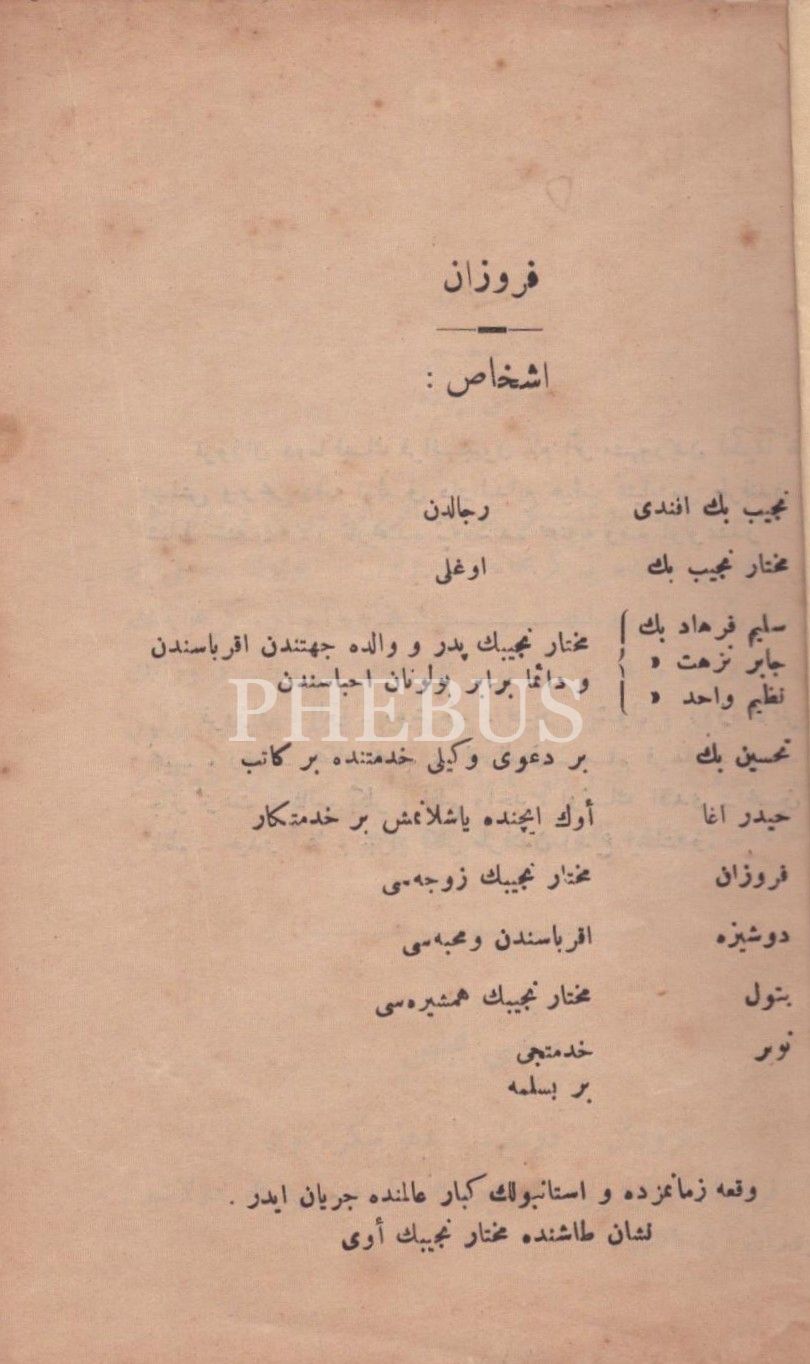 فروزان
اشخاص :
نجیب بك افندی رجالدن
مختار نجیب بك اوغلی
سلیم فرهاد بك
جابر نزهت »
نظیم واحد »
مختار نجیبك پدر و والده جهتندن اقرباسندن
و دائما برابر بولونان احباسندن
تحسین بك بر دعوی وكیلی خدمتنده بر كاتب
حیدر اغا أوك ایچنده یاشلانمش بر خدمتكار
فروزان مختار نجیبك زوجه‌سی
دوشیزه اقرباسندن ومحبه‌سی
بتول مختار نجیبك همشیره‌سی
نوبر خدمتجی
بر بسلمه
وقعه زمانمزده و استانبولك كبار عالمنده جریان ایدر .
نشان طاشنده مختار نجیبك أوی
PHEBUS